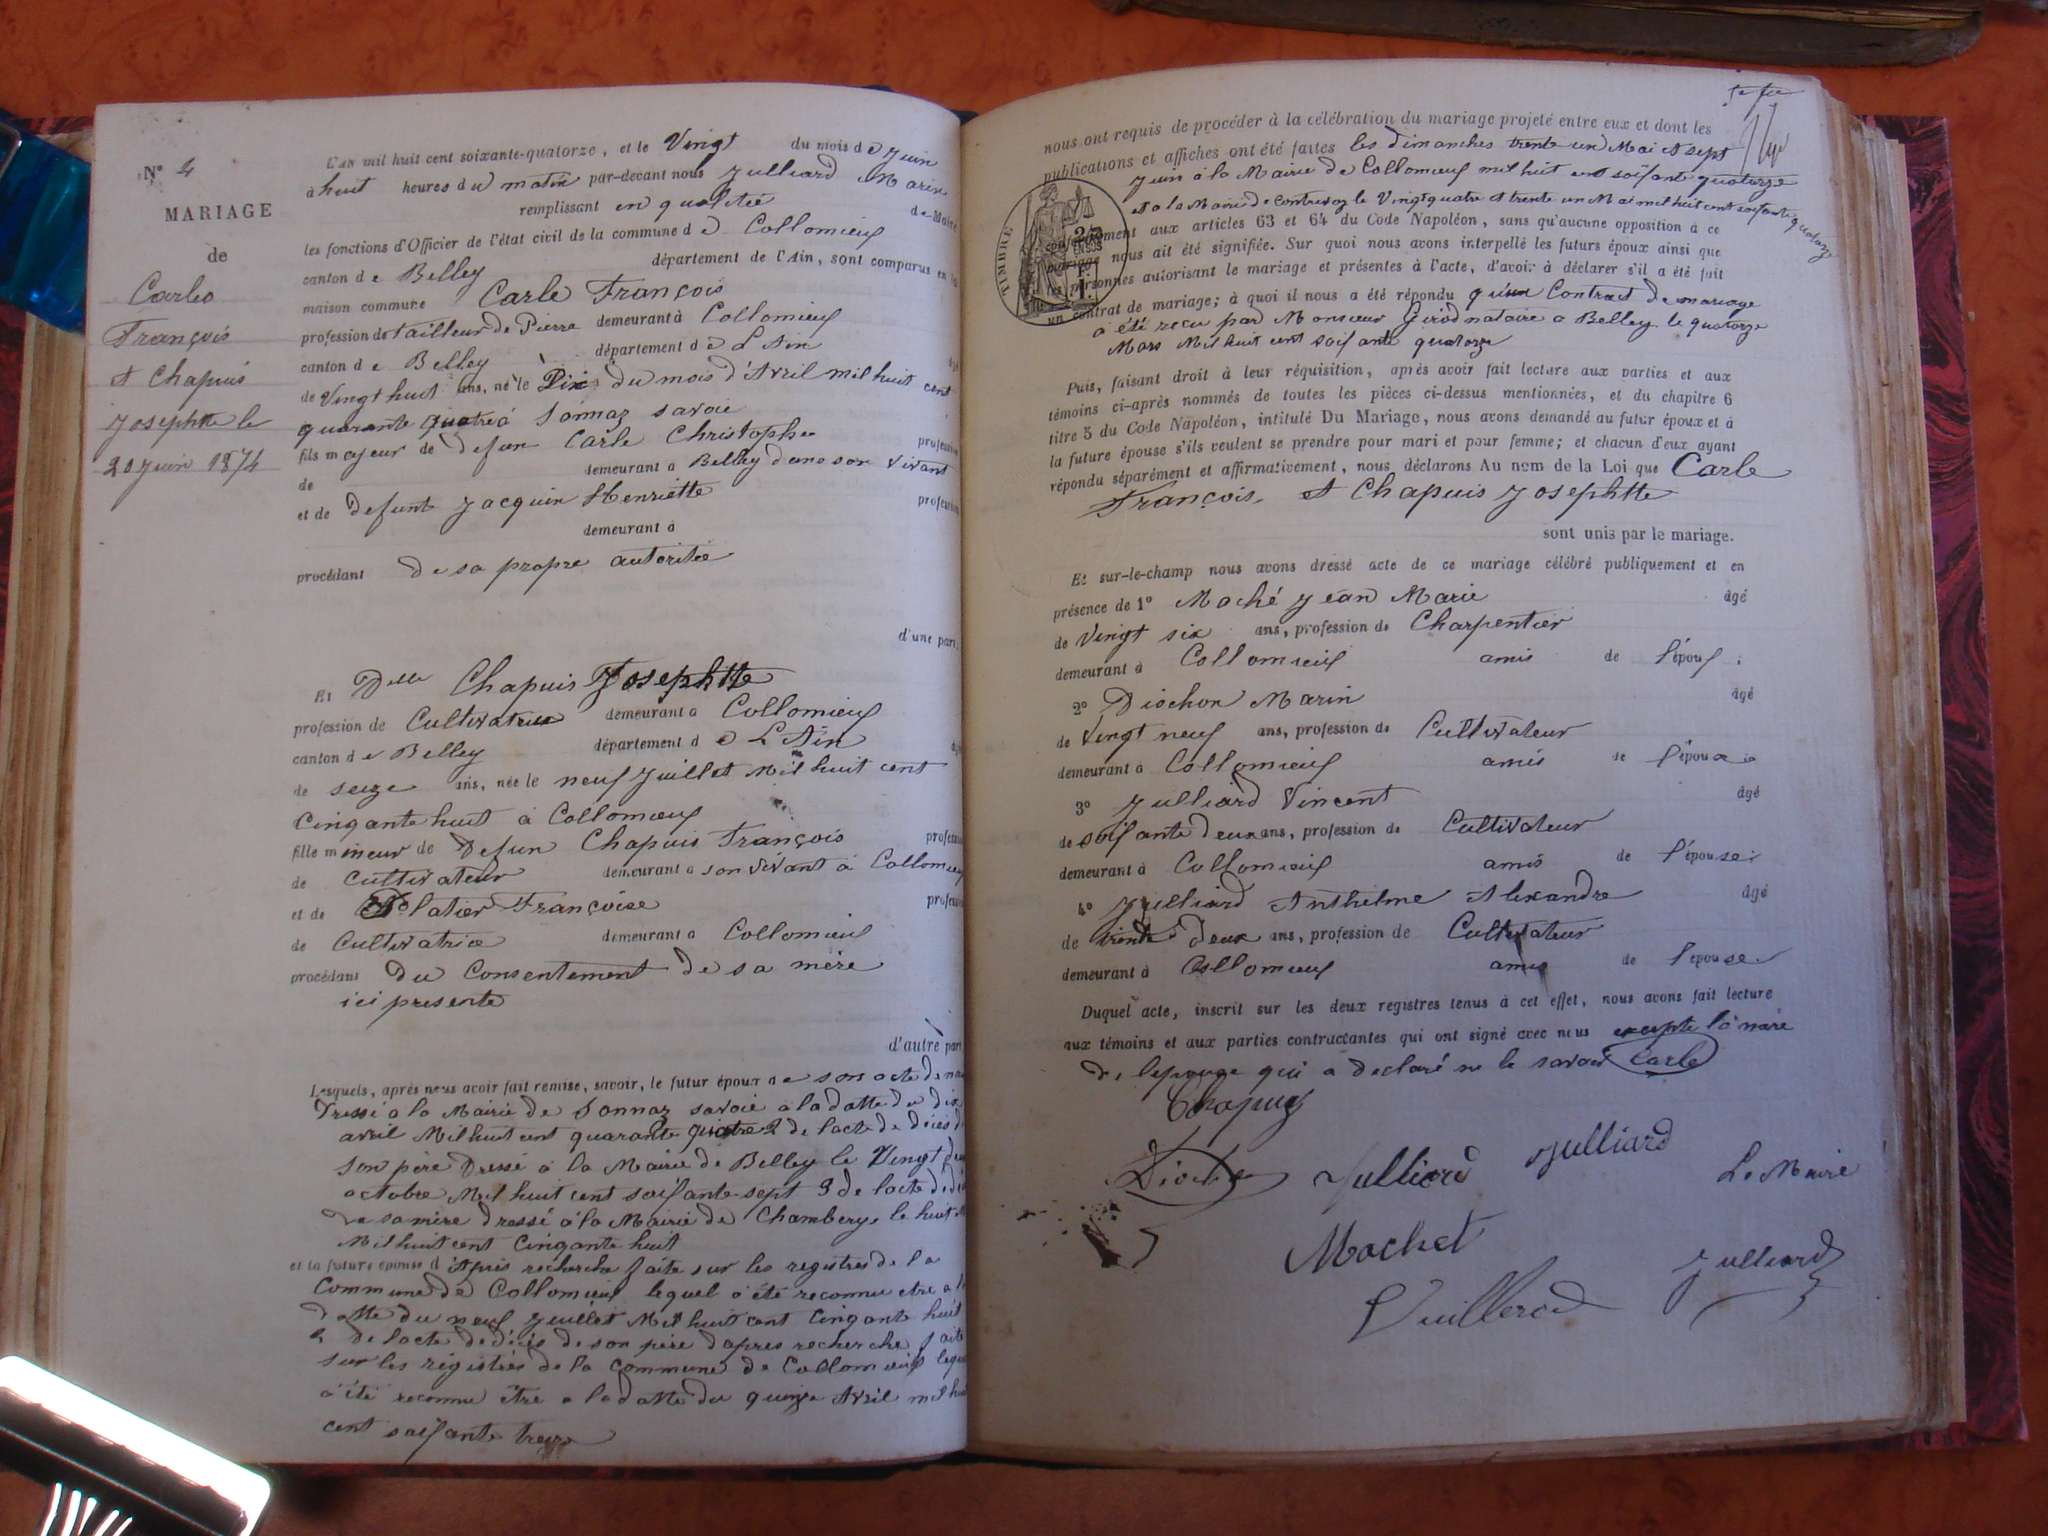 N° 4
MARIAGE
de
Carle
François
et Chapuis
Josephtte le
20 juin 1874
L'AN mil huit cent soixante-quatorze, et le Vingt du mois de Juin
à huit heures du matin par-devant nous Julliard Marin
remplissant en qualitée de Maire
les fonctions d'Officier de l'état civil de la commune de Collomieux
canton de Belley département de l'Ain, sont comparus en la
maison commune Carle François
profession de tailleur de Pierre demeurant à Collomieux
canton de Belley département de L'Ain
de Vingt huit ans, né le Dix du mois d'Avril mil huit cent
quarante quatre à Sonnaz savoie
fils majeur de defun Carle Christophe profession
de demeurant à Belley dans son vivant
et de defunt Jacquin Henriette profession
demeurant à
procédant de sa propre autoritée
d'une part,
Et Delle Chapuis Josephtte
profession de Cultivateur demeurant à Collomieux
canton de Belley département de L'Ain
de seize ans, née le neuf Juillet Mil huit cent
Cinqante huit à Collomieux
fille mineur de Defun Chapuis François profession
de Cultivateur demeurant à son vivant à Collomieux
et de Françoise profession
de Cultivatrice demeurant à Collomieux
procédant du Consentement de sa mère
ici presente
d'autre part
Lesquels, après nous avoir fait remise, savoir, le futur époux de son acte de
Dressé a la Mairie de Sonnaz savoie a la datte du dix
avril Mil huit cent quarante quatre 2 de lacte de décès de
son père Dressé à la Mairie de Belley le Vingt
octobre Mil huit cent soixante sept 3 de lacte de
de sa mère dressé à la Mairie de Chambery le huit
Mil huit cent Cinqante huit
et la future épouse d'Apris recherche faite sur les registres de la
Commune de Collomieux lequel a été reconnu etre a la
datte du neuf Juillet Mil huit cent Cinqante huit
2 de lacte de décès de son père dapres recherche faite
sur les régistres de la Commune de Collomieux lequel
a été reconnu être a la datte du quinze Avril mil huit
cent soixante treize
nous ont requis de procéder à la célébration du mariage projeté entre eux et dont les
publications et affiches ont été faites les dimanches trente un Mai et sept
Juin à la Mairie de Collomieux mil huit cent soixante quatorze
et a la Mairie de Contrevoz le Vingt quatre et trente un Mai mil huit cent soixante quatorze
conformément aux articles 63 et 64 du Code Napoléon, sans qu'aucune opposition à ce
mariage nous ait été signifiée. Sur quoi nous avons interpellé les futurs époux ainsi que
les personnes autorisant le mariage et présentes à l'acte, d'avoir à déclarer s'il a été fait
un contrat de mariage; à quoi il nous a été répondu qu'un Contrat de mariage
a été reçu par Monsieur Girod notaire a Belley le quatorze
Mars Mil huit cent soixante quatorze
TIMBRE
Puis, faisant droit à leur réquisition, après avoir fait lecture aux parties et aux
témoins ci-après nommés de toutes les pièces ci-dessus mentionnées, et du chapitre 6
titre 5 du Code Napoléon, intitulé Du Mariage, nous avons demandé au futur époux et à
la future épouse s'ils veulent se prendre pour mari et pour femme; et chacun d'eux ayant
répondu séparément et affirmativement, nous déclarons Au nom de la Loi que Carle
François et Chapuis Josephtte
sont unis par le mariage.
Et sur-le-champ nous avons dressé acte de ce mariage célébré publiquement et en
présence de 1° Moché Jean Marie âgé
de Vingt six ans, profession de Charpentier
demeurant à Collomieux amis de l'époux
2° Diochon Marin âgé
de Vingt neuf ans, profession de Cultivateur
demeurant à Collomieux amis de l'époux
3° Julliard Vincent âgé
de soixante deux ans, profession de Cultivateur
demeurant à Collomieux amis de l'épouse
4° Julliard Anthelme Alexandre âgé
de trente deux ans, profession de Cultivateur
demeurant à Collomieux amis de l'épouse
Duquel acte, inscrit sur les deux registres tenus à cet effet, nous avons fait lecture
aux témoins et aux parties contractantes qui ont signé avec nous excepte la mère
de lepouse qui a declaré ne le savoir Carle
Chapuis
Julliard Julliard
Le Maire
Mochet
Julliard